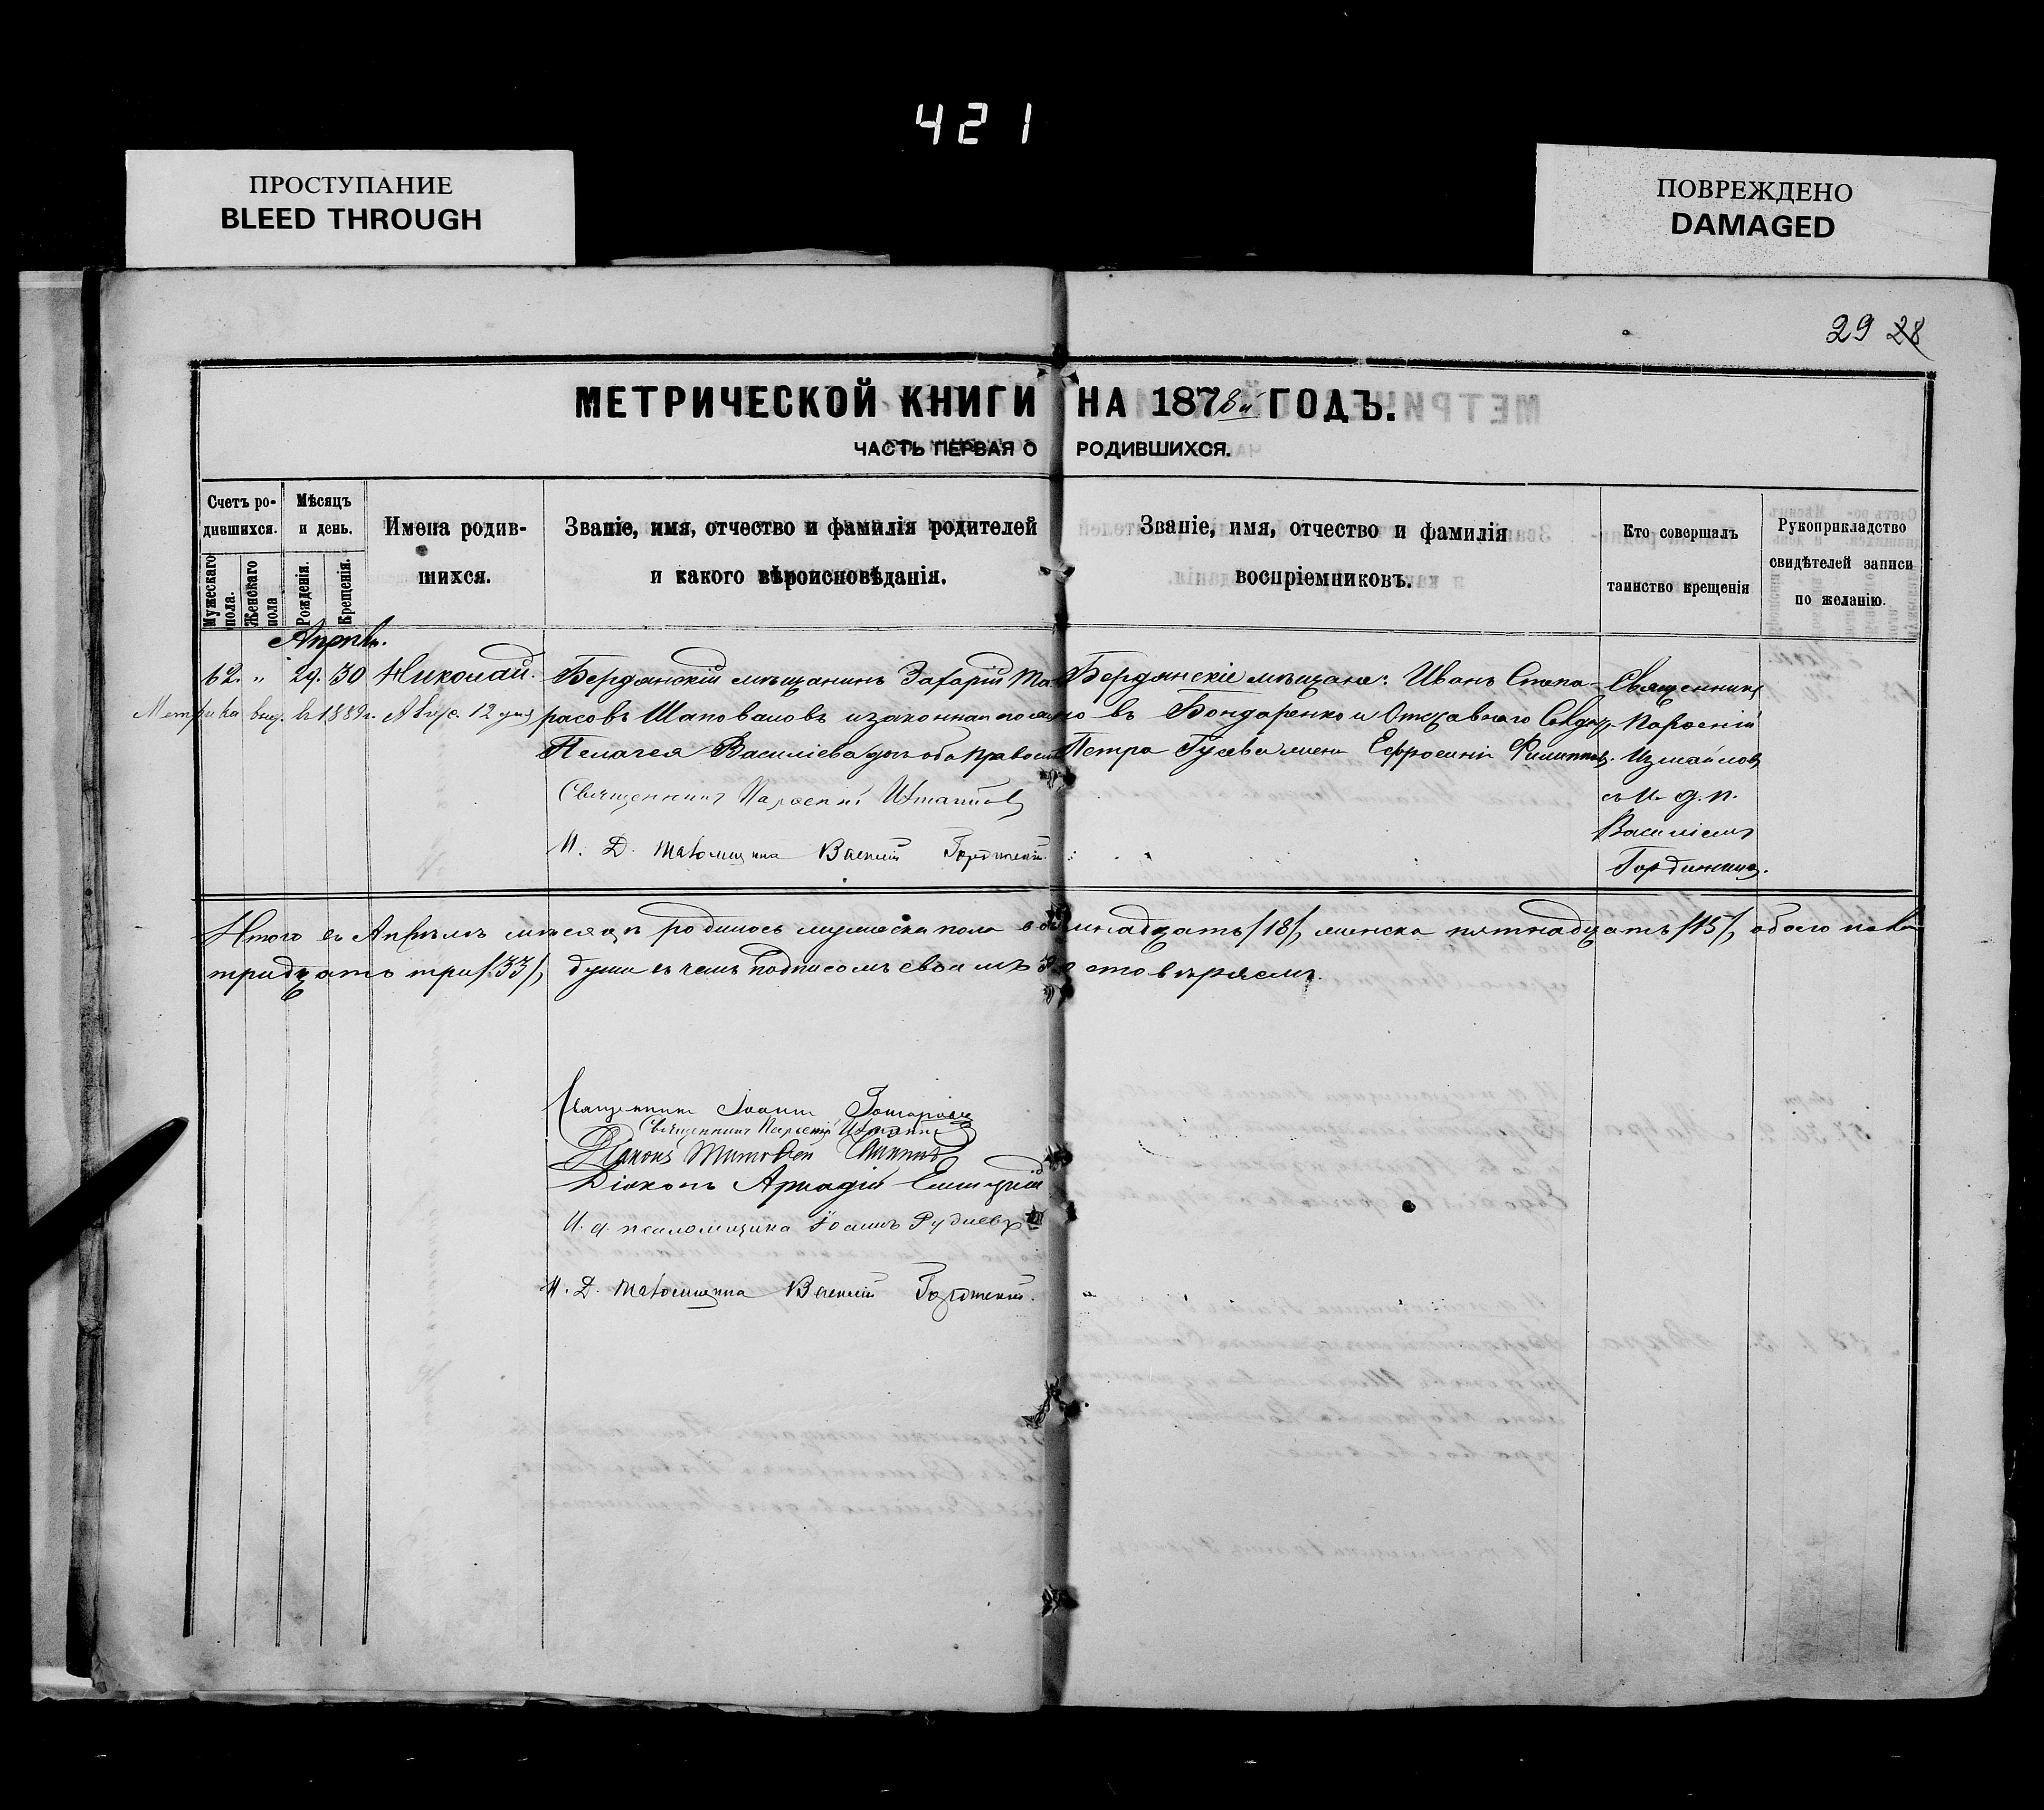 421
ПРОСТУПАНИЕ
BLEED THROUGH
ПОВРЕЖДЕНО
DAMAGED
29 28
МЕТРИЧЕСКОЙ КНИГИ НА 1878й ГОДЪ.
ЧАСТЬ ПЕРВАЯ О РОДИВШИХСЯ.
Счетъ ро-
дившихся.
Мужескаго пола.
Женскаго пола
Мѣсяцъ
и день.
Рожденія.
Крещенія.
Имена родив-
шихся.
Званіе, имя, отчество и фамилія родителей
и какого вѣроисповѣданія.
Званіе, имя, отчество и фамилія
воспріемниковъ.
Кто совершалъ
таинство крещенія
Рукоприкладство
свидѣтелей записи
по желанію.
Апрѣль.
62. " 29. 30 Николай.
Метрика выд. въ 1889г. Авгус. 12 дня
Бердянскій мѣщанинъ Захарій Та-
расовъ Шаповаловъ и законная жена его
Пелагея Васильева оба Правосл.
Священникъ Парѳеній Измайловъ
И. Д. псаломщика Василій
Бердянскіе мѣщане: Иванъ Степа-
новъ Бондаренко и Отставного Солдата
Петра Гусева жена Ефросинія Филиппова.
Священникъ
Парѳеній
Измайловъ
съ и. д. п.
Василіемъ
Итого въ Апрѣлѣ мѣсяцѣ родилось мужеска пола восемнадцать /18/, женска пятнадцать /15/, обоего пола
тридцать три /33/, души въ чемъ подписомъ своимъ удостовѣряемъ.
Священникъ Іоаннъ
Священникъ Парѳеній Измайловъ
Діаконъ
Діаконъ Аркадій
И. д. псаломщика Іоаннъ Рудневъ
И. Д. псаломщика Василій